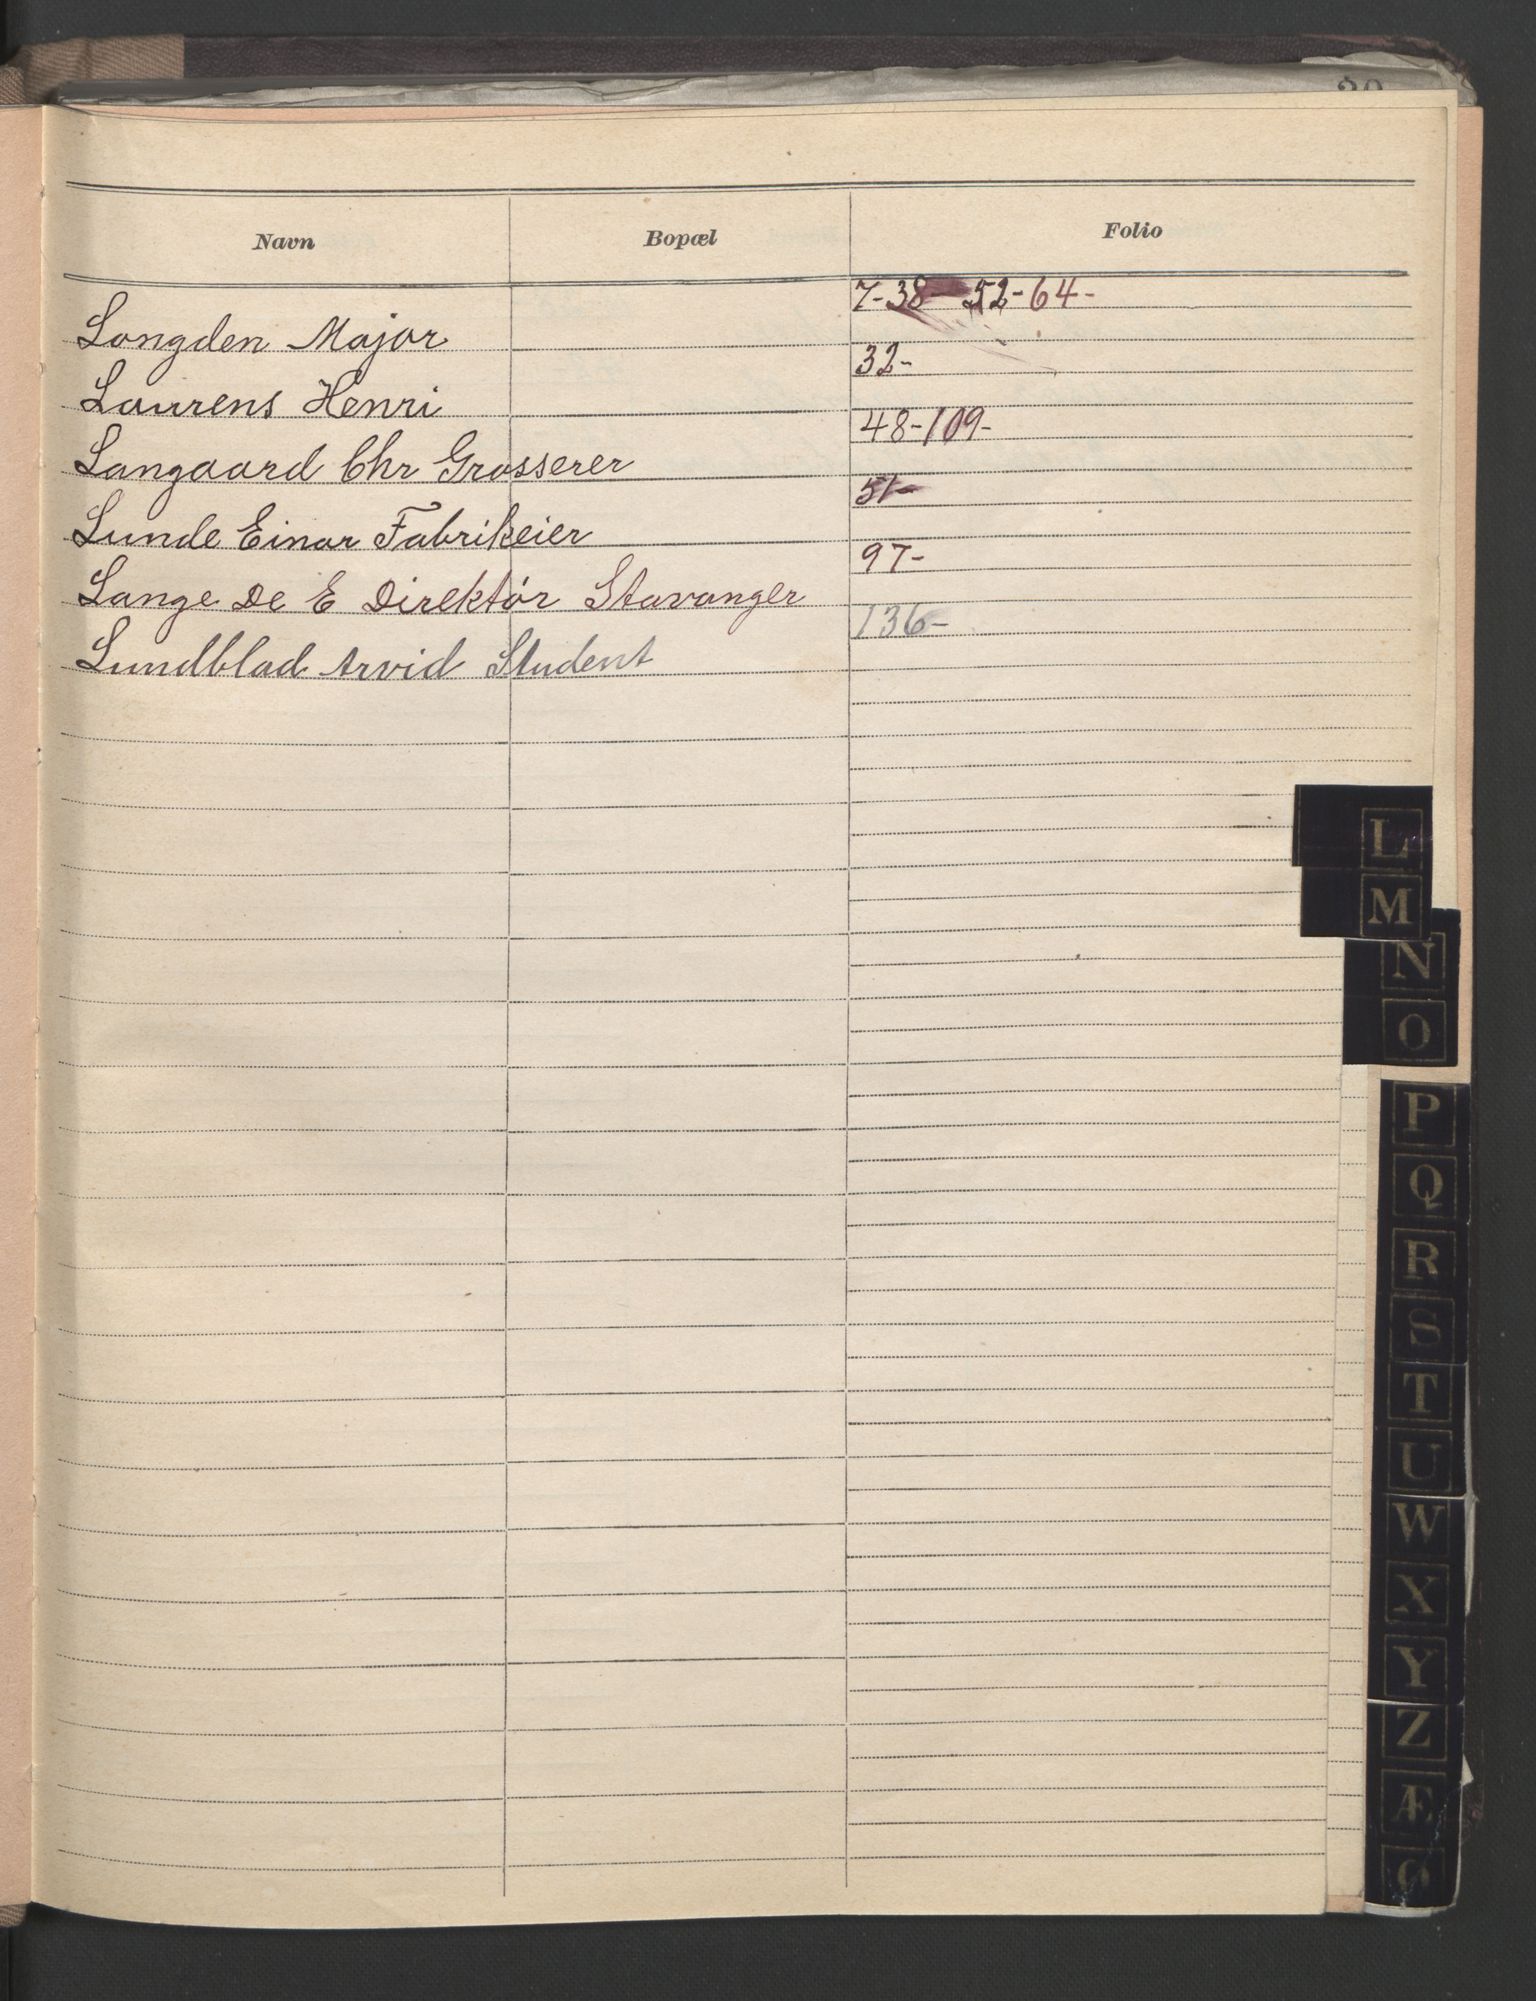 Navn Bopæl Folio
Langden Major 7-38- 52-64-
Laurens Henri 32-
Langaard Chr Grosserer 48-109-
Lunde Einar Fabrikeier 51-
Lange De E Direktør Stavanger 97-
Lundblad Arvid Student 136-
L
M
N
O
P
Q
R
S
T
U
W
X
Y
Z
Æ